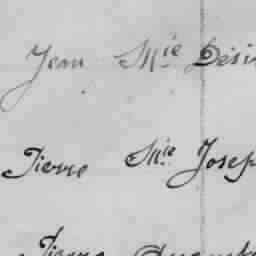 Jean Mie Dési
Pierre Mie Josep
Pierre August